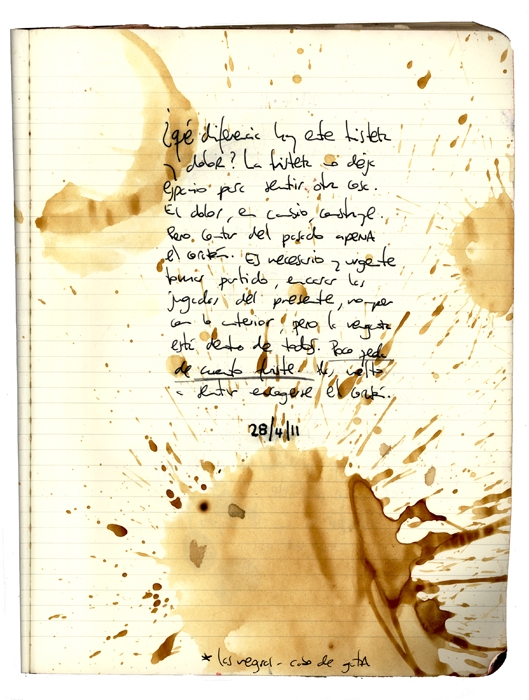 ¿qué diferencia hay entre tristeza
y dolor? La tristeza no deja
espacio para sentir otra cosa.
El dolor, en cambio, construye.
Pero contar del pasado apenA
el corazón. Es necesario y urgente
tomar partido, encarar las
jugadas del presente, romper
con lo anterior, pero la
está dentro de todos. Poco queda
de cuanto quise. He vuelto
a sentir encogerse el corazón.
28/4/11
* las negras - caso de